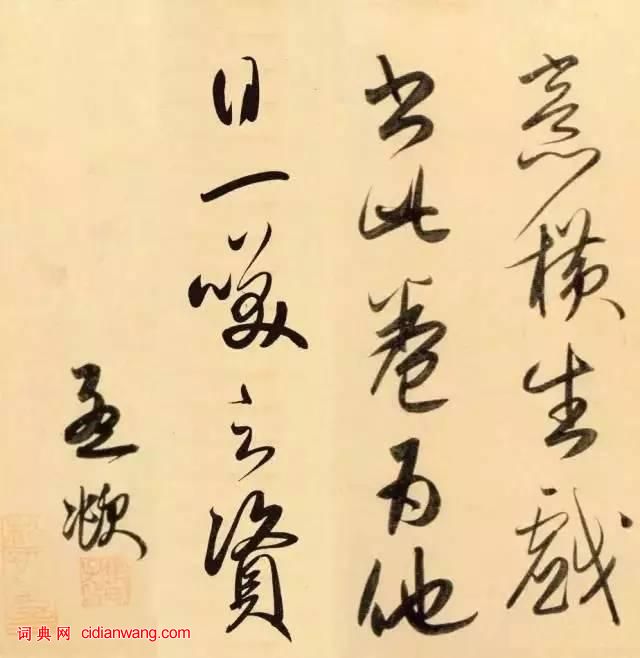 意橫生戲
書此卷為他
日一咲之資
孟頫
词典网 cidianwang.com